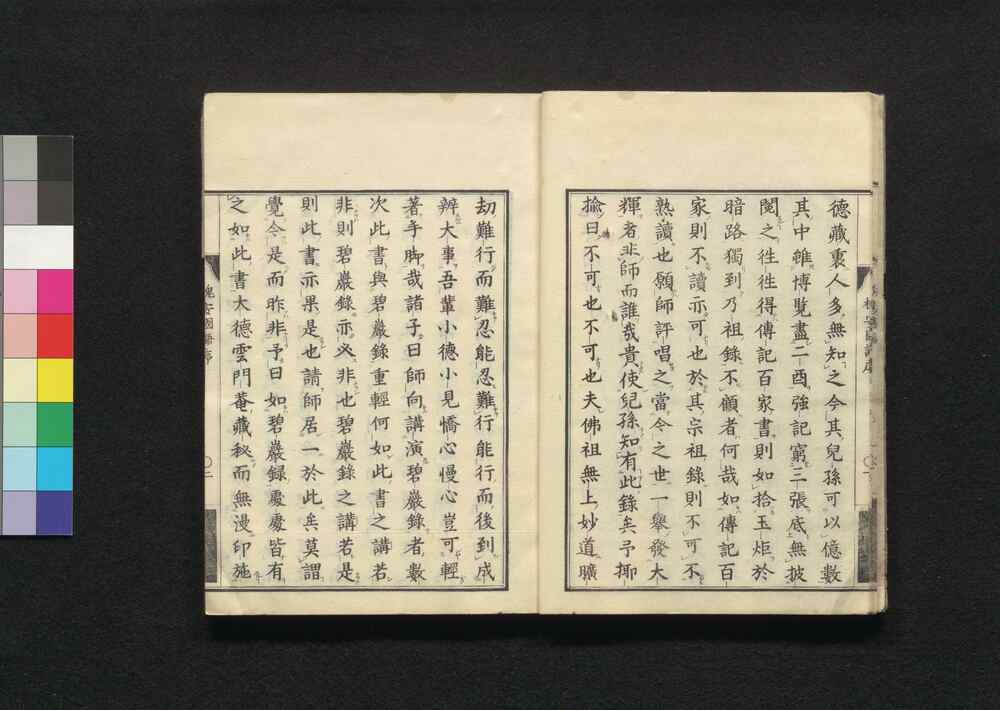 德藏裏人多無知之今其兒孫可以億數
其中雖博覧盡二酉強記窮三張底無披
閱之徃徃得傳記百家書則如拾玉炬於
暗路獨到乃祖錄不顧者何哉如傳記百
家則不讀亦可也於其宗祖錄則不可不
熟讀也願師評唱之當今之世一舉發大
輝者非師而誰哉貴使兒孫知有此錄矣予揶
揄曰不可也不可也夫佛祖無上妙道曠
劫難行而難忍能忍難行能行而後到成
辨大事吾輩小德小見憍心慢心豈可輕
著手脚哉諸子曰師向講演碧巖錄者數
次此書與碧巖錄重輕何如此書之講若
非則碧巖錄亦必非也碧巖錄之講若是
則此書亦果是也請師居一於此矣莫謂
覺今是而昨非予曰如碧巖録處處皆有
之如此書大德雲門菴藏秘而無漫印施
槐安國語序